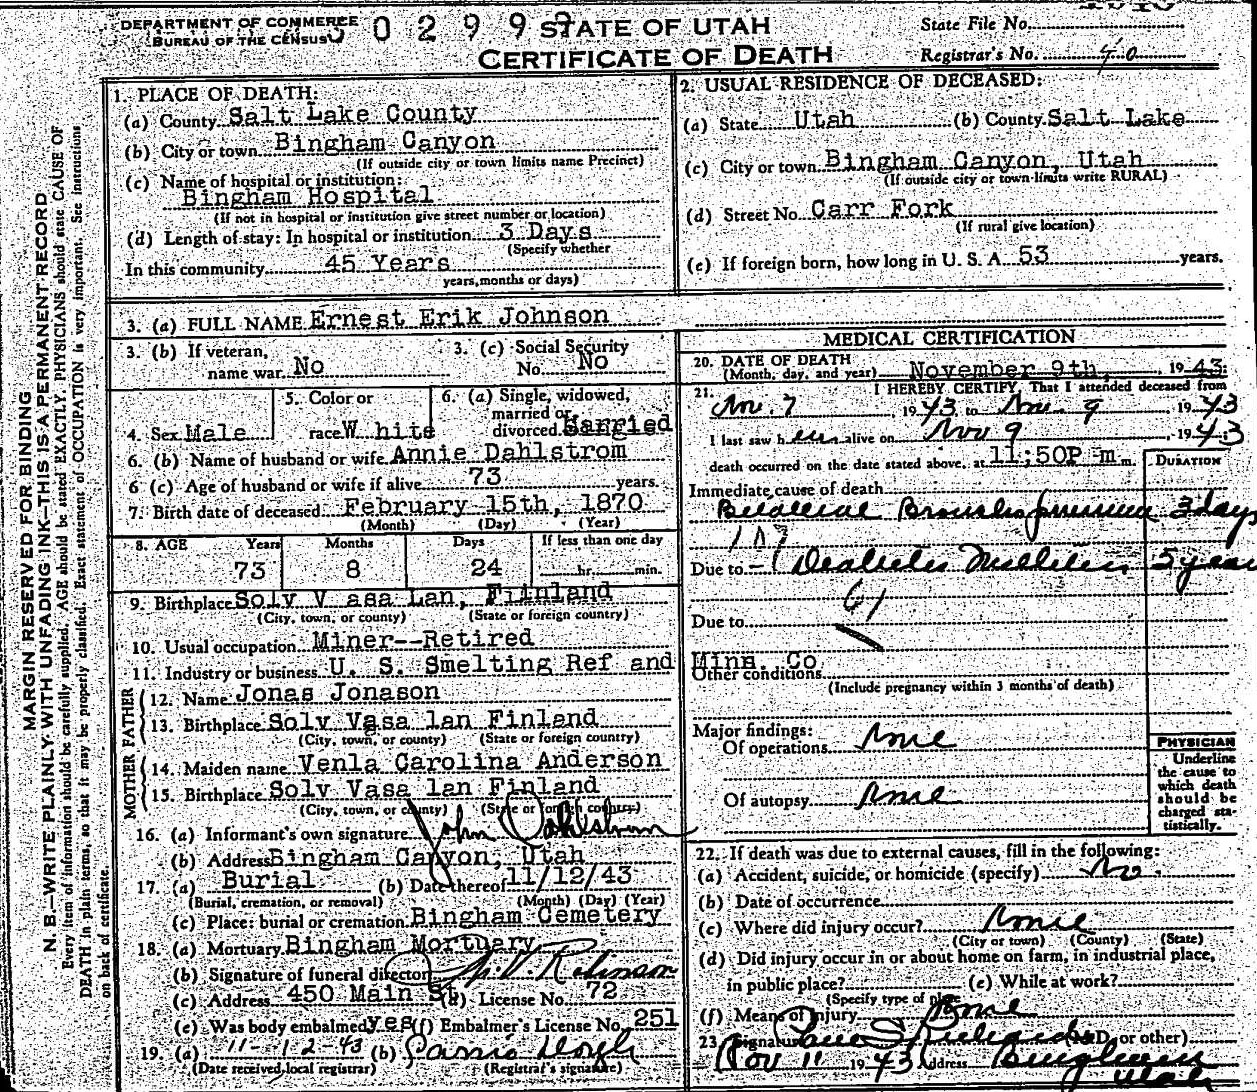 DEPARTMENT OF COMMERCE
BUREAU OF THE CENSUS
0 2 9 9
STATE OF UTAH
CERTIFICATE OF DEATH
State File No.
Registrar's No. 40
MARGIN RESERVED FOR BINDING
N. B.—WRITE PLAINLY WITH UNFADING INK—THIS IS A PERMANENT RECORD
Every item of information should be carefully supplied. AGE should be stated EXACTLY. PHYSICIANS should state CAUSE OF
DEATH in plain terms, so that it may be properly classified. Exact statement of OCCUPATION is very important. See instructions
on back of certificate.
1. PLACE OF DEATH:
(a) County Salt Lake County
(b) City or town Bingham Canyon
(If outside city or town limits name Precinct)
(c) Name of hospital or institution:
Bingham Hospital
(If not in hospital or institution give street number or location)
(d) Length of stay: In hospital or institution 3 Days
(Specify whether
In this community 45 Years
years, months or days)
2. USUAL RESIDENCE OF DECEASED:
(a) State Utah (b) County Salt Lake
(c) City or town Bingham Canyon, Utah
(If outside city or town limits write RURAL)
(d) Street No. Carr Fork
(If rural give location)
(e) If foreign born, how long in U. S. A. 53 years.
3. (a) FULL NAME Ernest Erik Johnson
3. (b) If veteran, name war No
3. (c) Social Security No. No
4. Sex Male
5. Color or race W hite
6. (a) Single, widowed, married or divorced Married
6. (b) Name of husband or wife Annie Dahlstrom
6 (c) Age of husband or wife if alive 73 years.
7. Birth date of deceased February 15th, 1870
(Month) (Day) (Year)
8. AGE Years Months Days If less than one day
73 8 24 hr. min.
9. Birthplace Solv V asa Lan, Fiinland
(City, town, or county) (State or foreign country)
10. Usual occupation Miner--Retired
11. Industry or business U. S. Smelting Ref and Minn. Co
FATHER
12. Name Jonas Jonason
13. Birthplace Solv Vasa lan Finland
(City, town, or county) (State or foreign country)
MOTHER
14. Maiden name Venla Carolina Anderson
15. Birthplace Solv Vasa lan Finland
(City, town, or county) (State or foreign country)
16. (a) Informant's own signature John Dahlstrom
(b) Address Bingham Canyon, Utah
17. (a) Burial (b) Date thereof 11/12/43
(Burial, cremation, or removal) (Month) (Day) (Year)
(c) Place: burial or cremation Bingham Cemetery
18. (a) Mortuary Bingham Mortuary
(b) Signature of funeral director Robinson
(c) Address 450 Main St (d) License No. 72
(e) Was body embalmed yes (f) Embalmer's License No. 251
19. (a) 11-12-43 (b)
(Date received local registrar) (Registrar's signature)
MEDICAL CERTIFICATION
20. DATE OF DEATH
(Month, day, and year) November 9th, 1943:
21. I HEREBY CERTIFY, That I attended deceased from
Nov. 7, 1943, to Nov. 9, 1943
I last saw h alive on Nov 9, 1943
death occurred on the date stated above, at 11;50P m m.
DURATION
Immediate cause of death
Bilateral Bronchopneumonia 3 days
107
Due to Diabetes Mellitus 5 years
61
Due to
Other conditions
(Include pregnancy within 3 months of death)
Major findings:
Of operations None
Of autopsy None
PHYSICIAN
Underline
the cause to
which death
should be
charged sta-
tistically.
22. If death was due to external causes, fill in the following:
(a) Accident, suicide, or homicide (specify) No.
(b) Date of occurrence
(c) Where did injury occur? None
(City or town) (County) (State)
(d) Did injury occur in or about home on farm, in industrial place,
in public place? (e) While at work?
(Specify type of place
(f) Means of injury None
23. Signature Richards (M.D. or other)
Nov 11 1943 Address Bingham
Utah